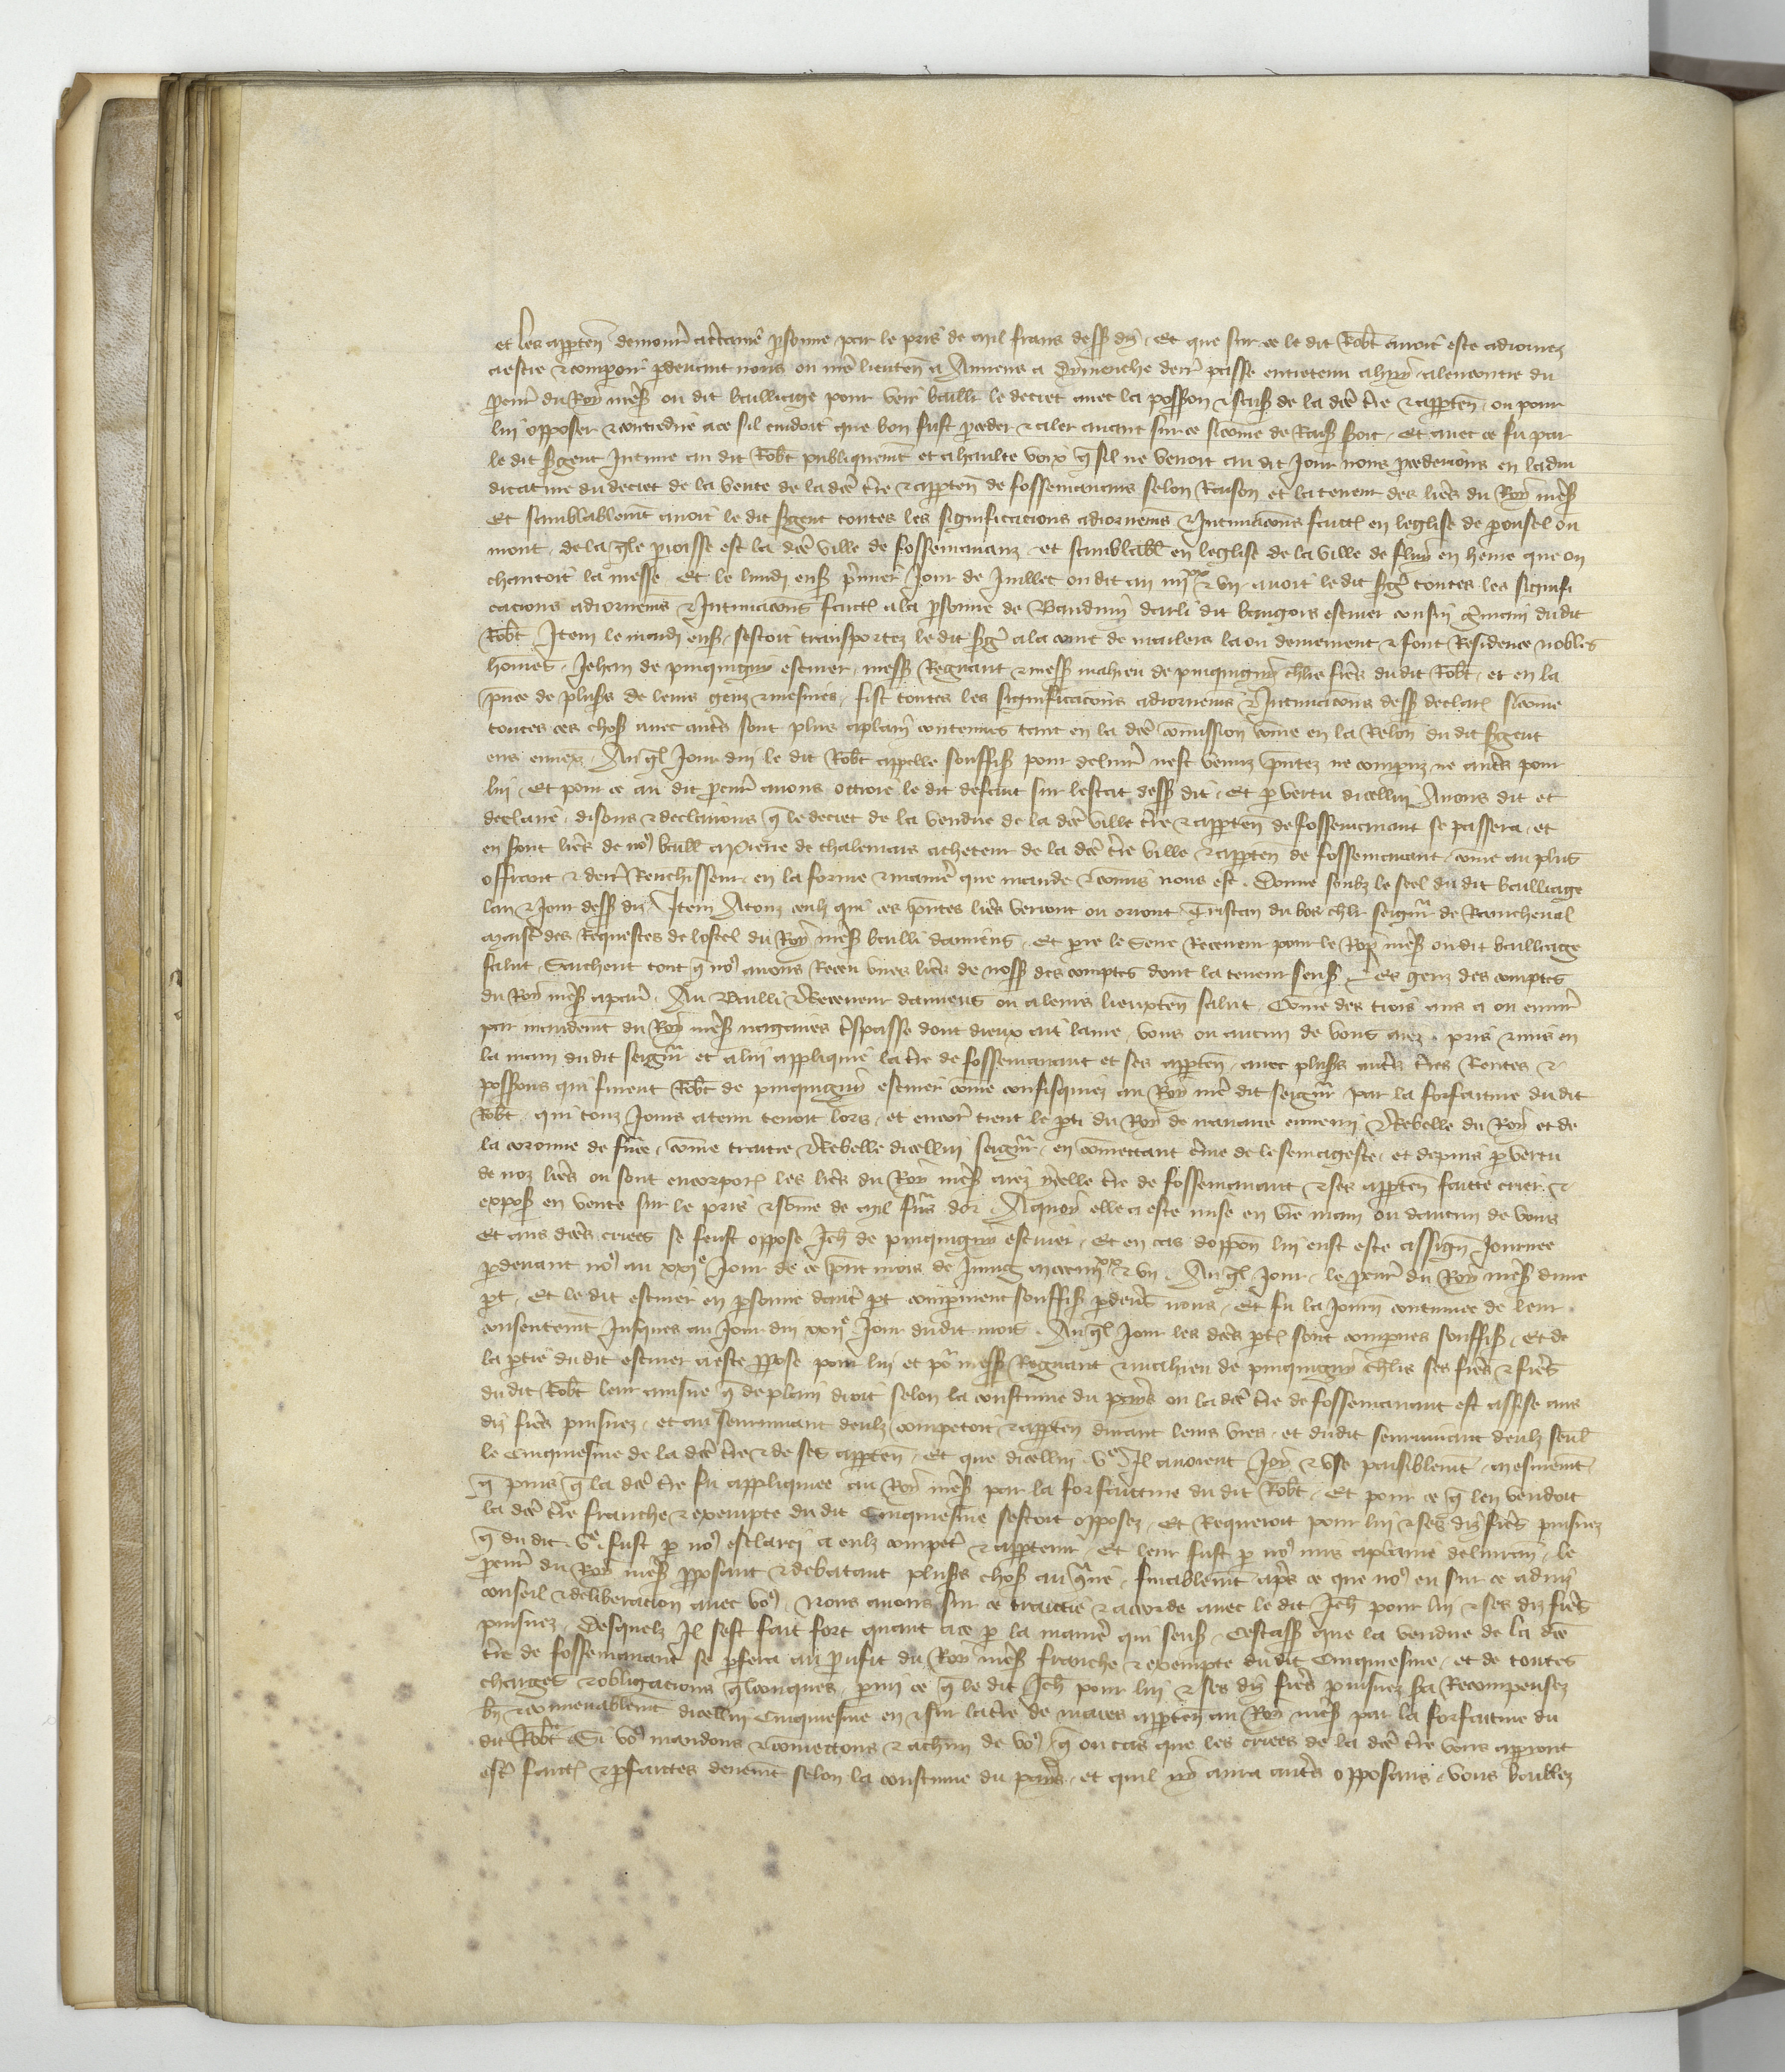 et les apparten demourer a certaine personne par le pris de mil frans dess diz. Et que sur ce le dit Robt avoit este adiornez
a estre & comparoir pardevant nous ou nre lieuten a Amiens a dymenche derr passe entretenu a huy alencontre du
procur du Roy nress ou dit bailliage pour veir baillr le decret avec la possion & sais de la dce tre & apparten. ou pour
lui opposer & contredire a ce sil cuidoit que bon fust proceder & aler avant sur ce sicome de Rais soit. Et avec ce fu par
le dit sgent Intime au dit Robt publiquemt et a haulte voix q sil ne venoit au dit Jour nous procederions en ladiu
dicature du decret de la vente de la dce tre & apparten de fossemanans selon Raison et la teneur des lres du Roy nress
Et samblablemt avoit le dit sgent toutes les significacions adiornemens & Intimacons faict en leglise de ponsel ou
mont. de la qle proisse est la dce ville de fossemananz. et samblabl en leglise de la ville de fluy en heure que on
chantoit la messe Et le lundj ens premier Jour de Juillet ou dit an iiijxx & vij avoit le dit sgt toutes les signifi
cacions adiornemens & Intimacons faict a la personne de Bauduin darli dit baugois escuier cousin germain du dit
Robt. Item le mardj ens. sestoit transportez le dit sgt a la court de mailers la ou demeurent & font Residence nobles
homes. Jehan de pinquigny escuier. mess Regnaut & mess mahieu de pinquigny chlrs freres du dit Robt. et en la
pnce de pluss de leurs genz & mesnies. fist toutes les significacons adiornemens & Intimacons dess declar sicome
toutes ces chos avec autres sont plus aplain contenues tant en la dce comission come en la Relon du dit sgent
ens ennexe. Au ql Jour duy le dit Robt appelle souffis pour delivr nest venuz presentez ne comparuz ne autres pour
lui. Et pour ce au dit procur avons ottroie le dit defaut sur lestat dess dit. Et p vertu dicellui Avons dit et
declaire. disons & declairons q le decret de la vendue de la dce ville tre & apparten de fossemanant se passera. et
en sont lres de nos baill a Pierre de chalemars acheteur de la dce tre ville & apparten de fossemanant. come au plus
offrant & derr Renchisseur. en la forme & maniere que mande & comis nous est. Donne soubz le seel du dit bailliage
lan & Jour dess diz. Item Atouz ceulz qui ces presentes lres verront ou orront Tristan du bos chlr seigneur de Raincheval
maistre des Requestes de lostel du Roy nress bailli damiens. Et pierre le Sene Receveur pour le Roy nress ou dit bailliage
salut. Sachent tout q nos avons Receu unes lres de noss des comptes dont la teneur sens. Les genz des comptes
du Roy nress a paris. Au Bailli & Receveur damiens ou a leurs lieuxten salut. Come des trois ans a ou environ
par mandemt du Roy nress nagaires trespasse dont dieux ait lame. vous ou aucun de vous aiez pris & mis en
la main du dit seigneur et a lui appliquie la tre de fossemanant et ses apparten. avec pluss autres tres Rentes &
possions qui furent Robt de pinquigny escuier come confisquiez au Roy nre dit seigneur par la forfaiture du dit
Robt. qui touz Jours a tenu tenoit lors. et encor tient le parti du Roy de navarre ennemi & Rebelle du Roy et de
la coronne de france. come traitre & Rebelle dicellui seigneur. en comettant crime de lesemageste. et depuis p vertu
de noz lres ou sont encorpor les lres du Roy nress aiez ycelle tre de fossemanant & ses apparten faitte crier &
expos en vente sur le pris & some de mil frans dor. Aquoy elle a este mise en vre main ou daucun de vous
Et aus dces criees se feust oppose Jeh de pinquigny escuier. Et en cas doppon lui eust este assign Journee
pardevant nos au xxje Jour de ce present mois de Juing mccciiijxx & vij. Au ql Jour. le procur du Roy nress dune
part. Et le dit escuier en personne dautre part comparurent souffis pardevt nous. Et fu la Journ continuee de leur
consentemt Jusques au Jour duy xxije Jour du dit mois. Au ql Jour les dces part sont comparues souffis. Et de
la partie du dit escuier a este propose pour lui et pour mess Regnaut & mahieu de pinquigny chlrs ses freres & freres
du dit Robt leur ainsne q de plain droit selon la coustume du pays ou la dce tre de fossemanant est assise aus
diz freres puisnez. et au seurvivant deulz competoit & apparten durant leurs vies. et du dit seurvivant deulz seul
le Cinquiesme de la dce tre & de ses apparten. Et que dicellui ve Il avoient Joy & use paisiblemt. mesmemt.
q puis q la dce tre fu appliquee au Roy nress par la forfaitture du dit Robt. Et pour ce q len vendoit
la dce tre franche & exempte du dit Cinquiesme sestoit opposez. Et Requeroit pour lui & ses diz freres puisnez
q du dit. ve. fust p nos esclarci a eulz competer & appartenir. Et leur fust p nos mis aplaine delivran. le
procur du Roy nress proposant & debatant pluss chos au contraire. finablemt apres ce que nos eu sur ce advis
conseil & deliberacion avec vos. Nous avons sur ce traictie & acorde avec le dit Jeh pour lui & ses diz freres
puisnez. Desquelz Il sest fait fort quant a ce p la maniere qui sens. Cestass que la vendue de la dce
tre de fossemanant se perfera au prouffit du Roy nress franche & exempte du dit Cinquiesme. et de toutes
charges & obligacions qlconques. parmi ce q le dit Jeh pour lui & ses diz freres puisnez sa Recompensez
bn & convenablemt dicellui Cinquiesme en & sur la tre de maies apparten au Roy nress par la forfaiture du
dit Robt. Si vos mandons & comettons & a chun de vos q ou cas que les criees de la dce tre vous apperront
estre faict & parfaictes deuemt selon la coustume du pays. et quil ny aura autres opposans. vous baillez